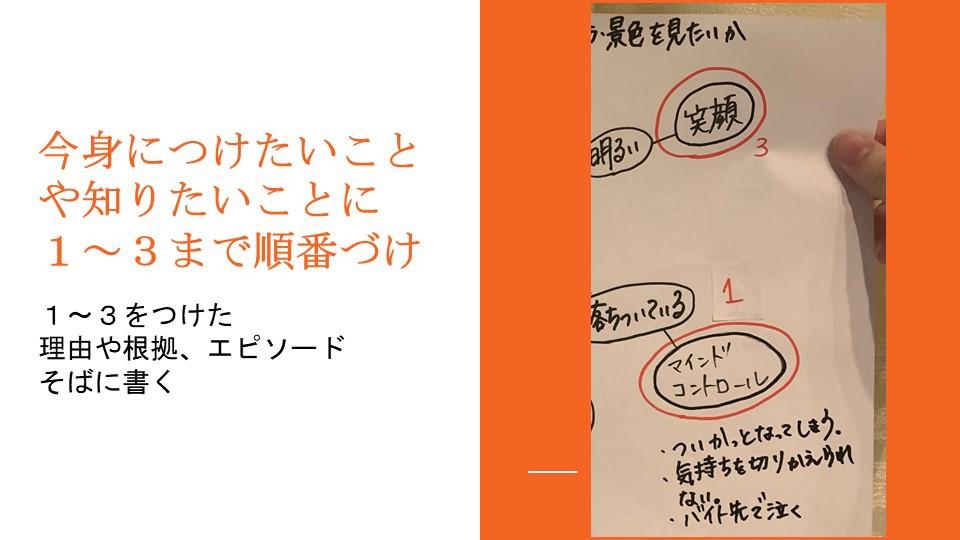 今身につけたいこと
や知りたいことに
１～３まで順番づけ
１～３をつけた
理由や根拠、エピソード
そばに書く
景色を見たいか
笑顔
明るい
3
落ちついている
1
マインド
コントロール
・ついかっとなってしまう。
・気持ちを切りかえられ
ない。
・バイト先で泣く